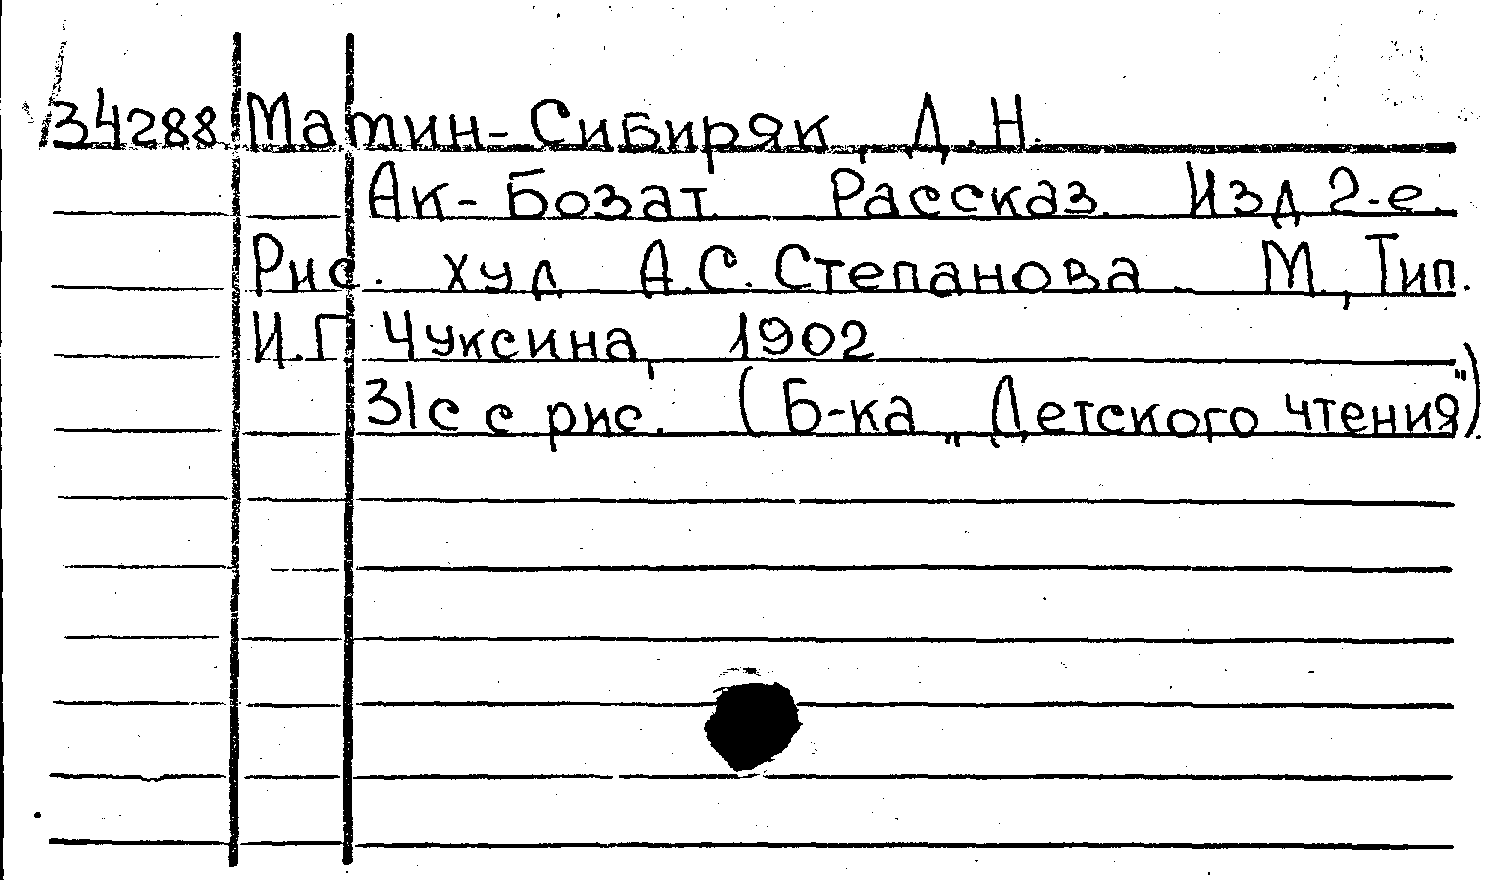 34288 Мамин-Сибиряк, Д.Н.
Ак-Бозат. Рассказ. Изд 2-е.
Рис. худ А.С.Степанова. М, Тип.
И.Г Чуксина, 1902
31с с рис. (Б-ка „Детского чтения")